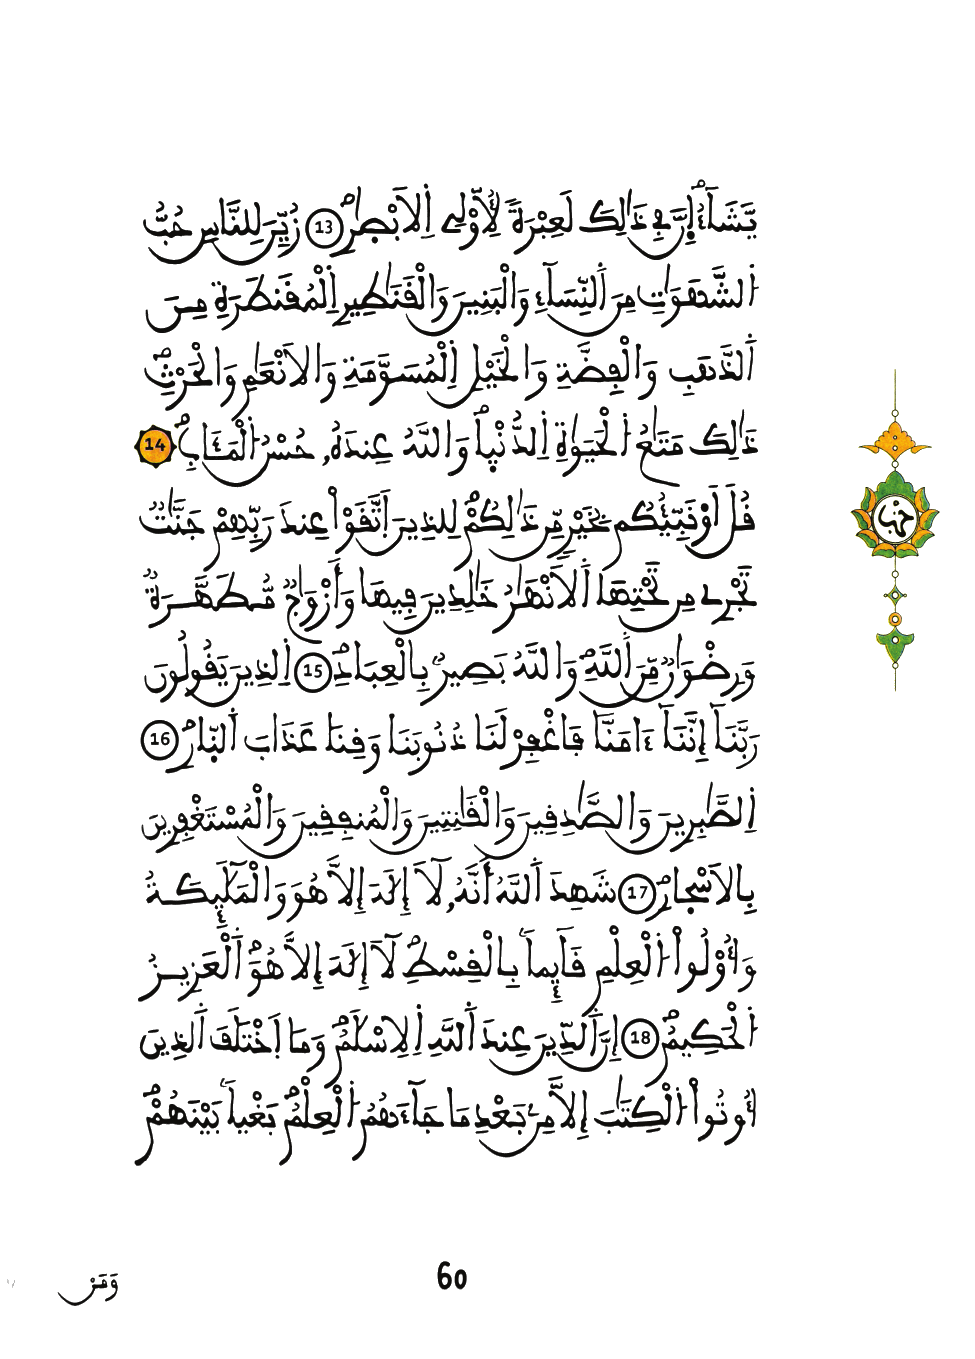 يَّشَآءُ اِ۪نَّ فِے ذَٰلِكَ لَعِبْرَةٗ لِّأُوْلِے اِ۬لَابْصٰ۪رِۖ 13 زُيِّنَ لِلنَّاسِ حُبُّ
اُ۬لشَّهَوَٰتِ مِنَ اَ۬لنِّسَآءِ وَالْبَنِينَ وَالْقَنَٰطِيرِ اِ۬لْمُقَنطَرَةِ مِنَ
اَ۬لذَّهَبِ وَالْفِضَّةِ وَالْخَيْلِ اِ۬لْمُسَوَّمَةِ وَالَانْعَٰمِ وَالْحَرْثِۖ
ذَٰلِكَ مَتَٰعُ اُ۬لْحَيَوٰةِ اِ۬لدُّنْي۪اۖ وَاللَّهُ عِندَهُۥ حُسْنُ اُ۬لْمَـَٔابِۖ 14
قُلَ اَوْ۟نَبِّئُكُم بِخَيْرٖ مِّن ذَٰلِكُمْۖ لِلذِينَ اَ۪تَّقَوْاْ عِندَ رَبِّهِمْ جَنَّٰتٞ
تَجْرِے مِن تَحْتِهَا اَ۬لَانْهَٰرُ خَٰلِدِينَ فِيهَا وَأَزْوَٰجٞ مُّطَهَّرَةٞ
وَرِضْوَٰنٞ مِّنَ اَ۬للَّهِۖ وَاللَّهُ بَصِيرُۢ بِالْعِبَادِۖ 15 اِ۬لذِينَ يَقُولُونَ
رَبَّنَآ إِنَّنَآ ءَامَنَّا فَاغْفِرْ لَنَا ذُنُوبَنَا وَقِنَا عَذَابَ اَ۬لنّ۪ارِۖ 16
اِ۬لصَّٰبِرِينَ وَالصَّٰدِقِينَ وَالْقَٰنِتِينَ وَالْمُنفِقِينَ وَالْمُسْتَغْفِرِينَ
بِالَاسْح۪ارِۖ 17 شَهِدَ اَ۬للَّهُ أَنَّهُۥ لَآ إِلَٰهَ إِلَّا هُوَ وَالْمَلَٰٓئِكَةُ
وَأُوْلُواْ اُ۬لْعِلْمِ قَآئِماَۢ بِالْقِسْطِۖ لَآ إِلَٰهَ إِلَّا هُوَۖ اَ۬لْعَزِيزُ
اُ۬لْحَكِيمُۖ 18 إِنَّ اَ۬لدِّينَ عِندَ اَ۬للَّهِ اِ۬لِاسْلَٰمُۖ وَمَا اَ۪خْتَلَفَ اَ۬لذِينَ
أُوتُواْ اُ۬لْكِتَٰبَ إِلَّا مِنۢ بَعْدِ مَا جَآءَهُمُ اُ۬لْعِلْمُۖ بَغْياَۢ بَيْنَهُمْۖ
حزب
60
وَمَنْ